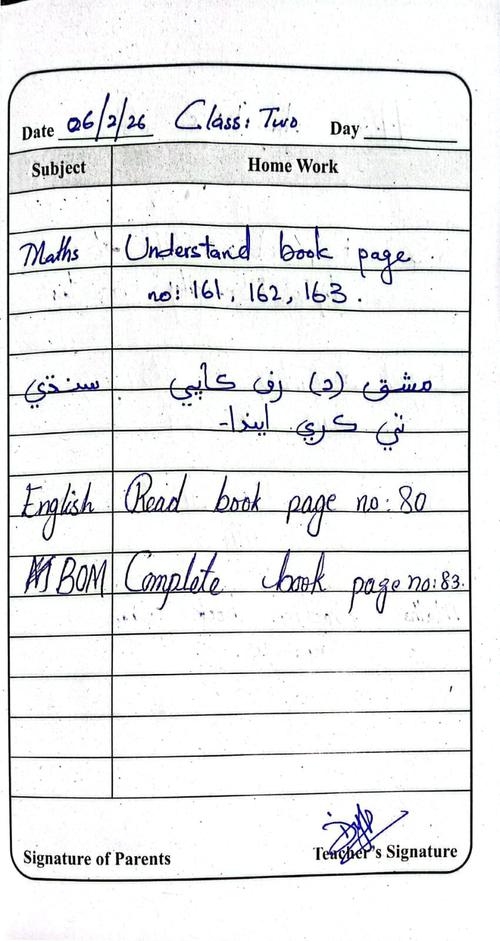 Date 06/2/26 Class: Two Day
Subject Home Work
Maths Understand book page
no: 161, 162, 163.
سنڌي مشق (د) رف ڪاپي
تي ڪري ايندا۔
English Read book page no: 80
BOM Complete book page no: 83.
Signature of Parents Teacher's Signature